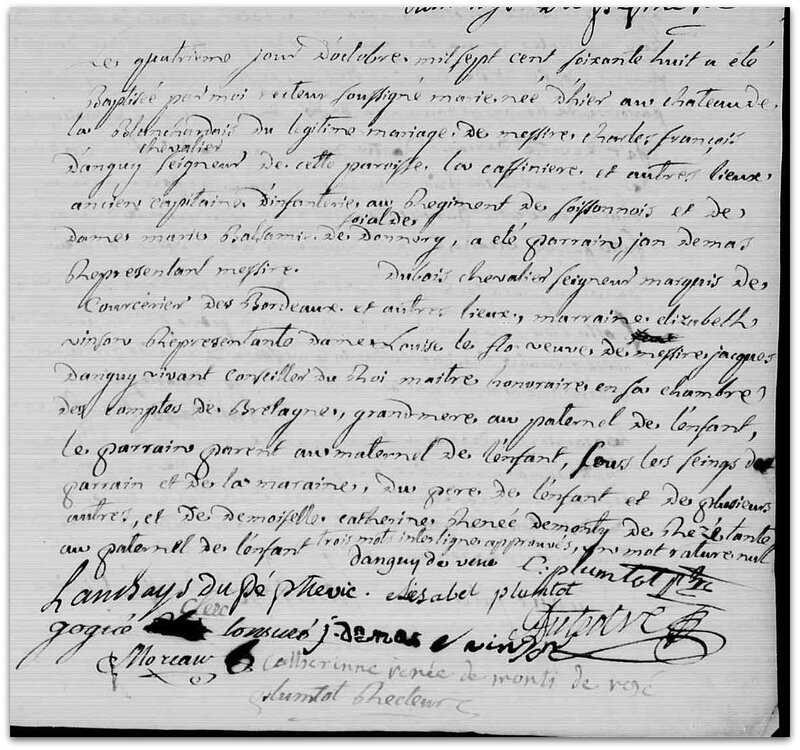 Le quatrieme jour d'octobre mil sept cent soixante huit a été
Baptisée par moi recteur soussigné marie née d'hier au chateau de
la blanchardais du legitime mariage de messire charles françois
chevalier
danguy seigneur de cette paroisse la caffiniere et autres lieux
ancien capitaine d'infanterie au Regiment de soissonnois et de
loial de
dame marie Balsamie de donnery, a été parrain jan demas
Representant messire dubois chevalier seigneur marquis de
Courcerier des Bordeaux et autres lieux, marraine elizabeth
vinson Representante dame Louise le flo veuve de messire jacques
danguy vivant conseiller du Roi maitre honoraire en sa chambre
des comptes de Bretagne, grandmere au paternel de l'enfant,
le parrain parent au maternel de l'enfant, sous les seings du
parrain et de la maraine, du pere de l'enfant et de plusieurs
autres, et de demoiselle catherine Renée demonty de Rezé tante
au paternel de l'enfant trois mot interligne approuvés, un mot rature nul
danguy de vüe C: plumtot ptre
Elisabel plumtot
gogué j. demas e vinson
Moreau Catherinne renée de monti de rezé
plumtot Recteur